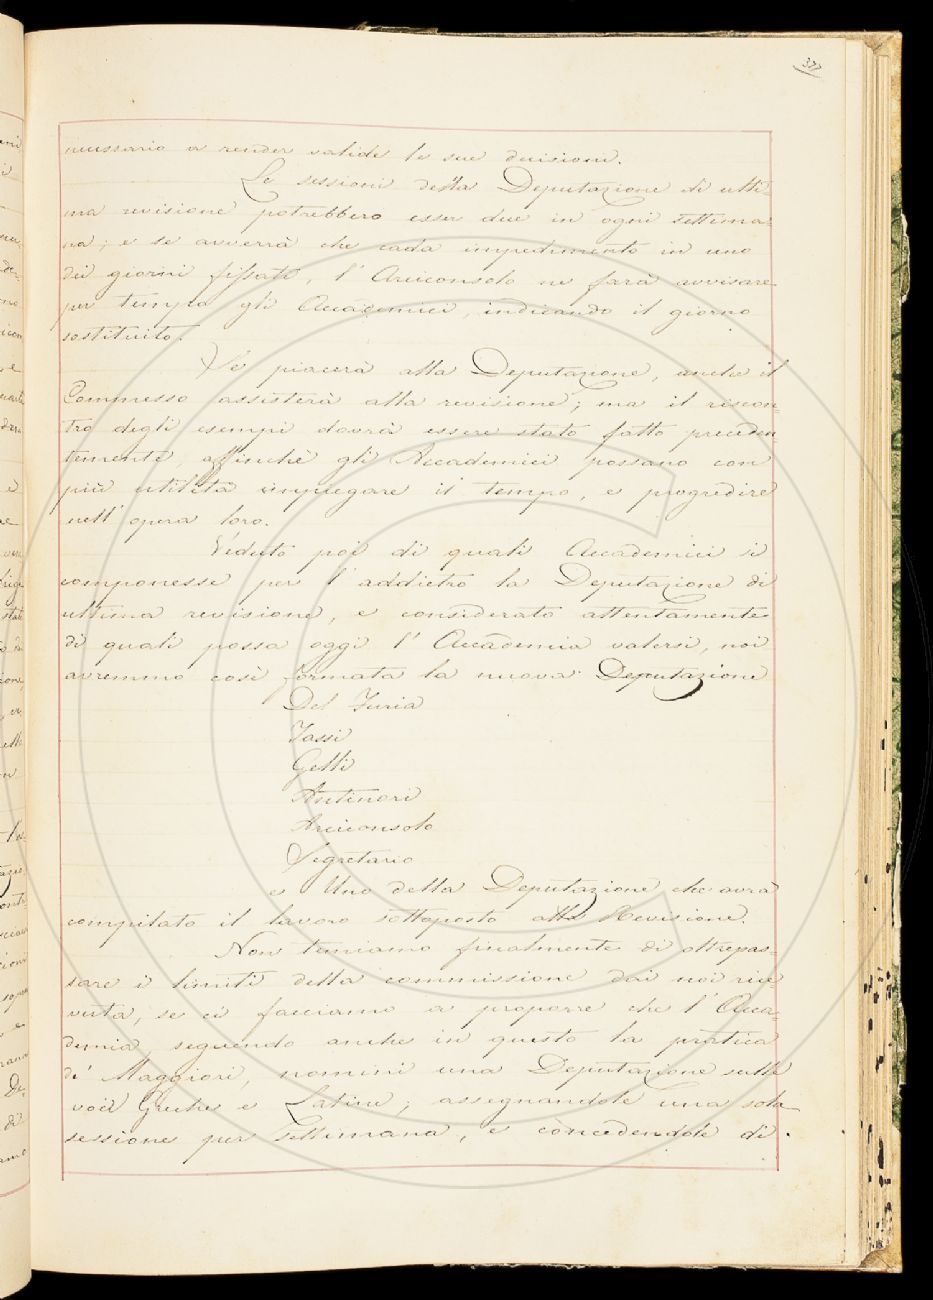 377
necessario a render valide le sue decisioni.
Le sessioni della Deputazione di ulti-
ma revisione potrebbero esser due in ogni settima-
na; e se avverrà che cada impedimento in uno
dei giorni fissati, l'Arciconsolo ne farà avvisare
per tempo gli Accademici, indicando il giorno
sostituito.
Se piacerà alla Deputazione, anche il
Commesso assisterà alla revisione; ma il riscon-
tro degli esempi dovrà essere stato fatto preceden
temente, affinchè gli Accademici possano con
più utilità impiegare il tempo, e progredire
nell'opera loro.
Veduto poi di quali Accademici si
componesse per l'addietro la Deputazione di
ultima revisione, e considerato attentamente
di quali possa oggi l'Accademia valersi, noi
avremmo così formata la nuova Deputazione
Del Furia
Tassi
Gelli
Antinori
Arciconsolo
Segretario
e Uno della Deputazione che avrà
compilato il lavoro sottoposto alla Revisione.
Non temiamo finalmente di oltrepas-
sare i limiti della commissione dai noi rice
vuta, se ci facciamo a proporre che l'Acca-
demia, seguendo anche in questo la pratica
de' Maggiori, nomini una Deputazione sulle
voci Greche e Latine; assegnandole una sola
sessione per settimana, e concedendole di